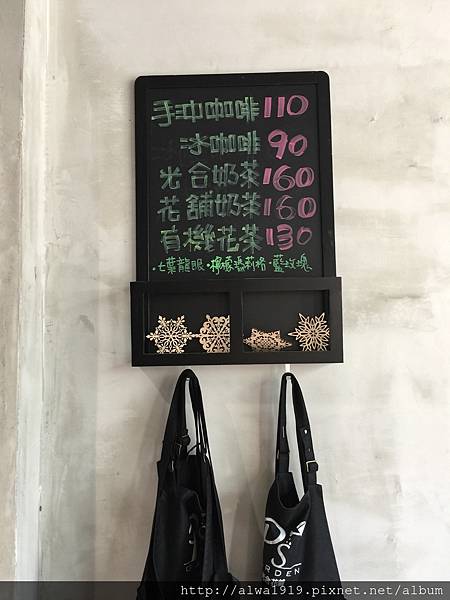 手沖咖啡 110
冰咖啡 90
光合奶茶 160
花舖奶茶 160
有機花茶 130
·七葉龍眼·檸檬瑪莉格·藍玫瑰
RDEN
http://alwa1919.pixnet.net/album